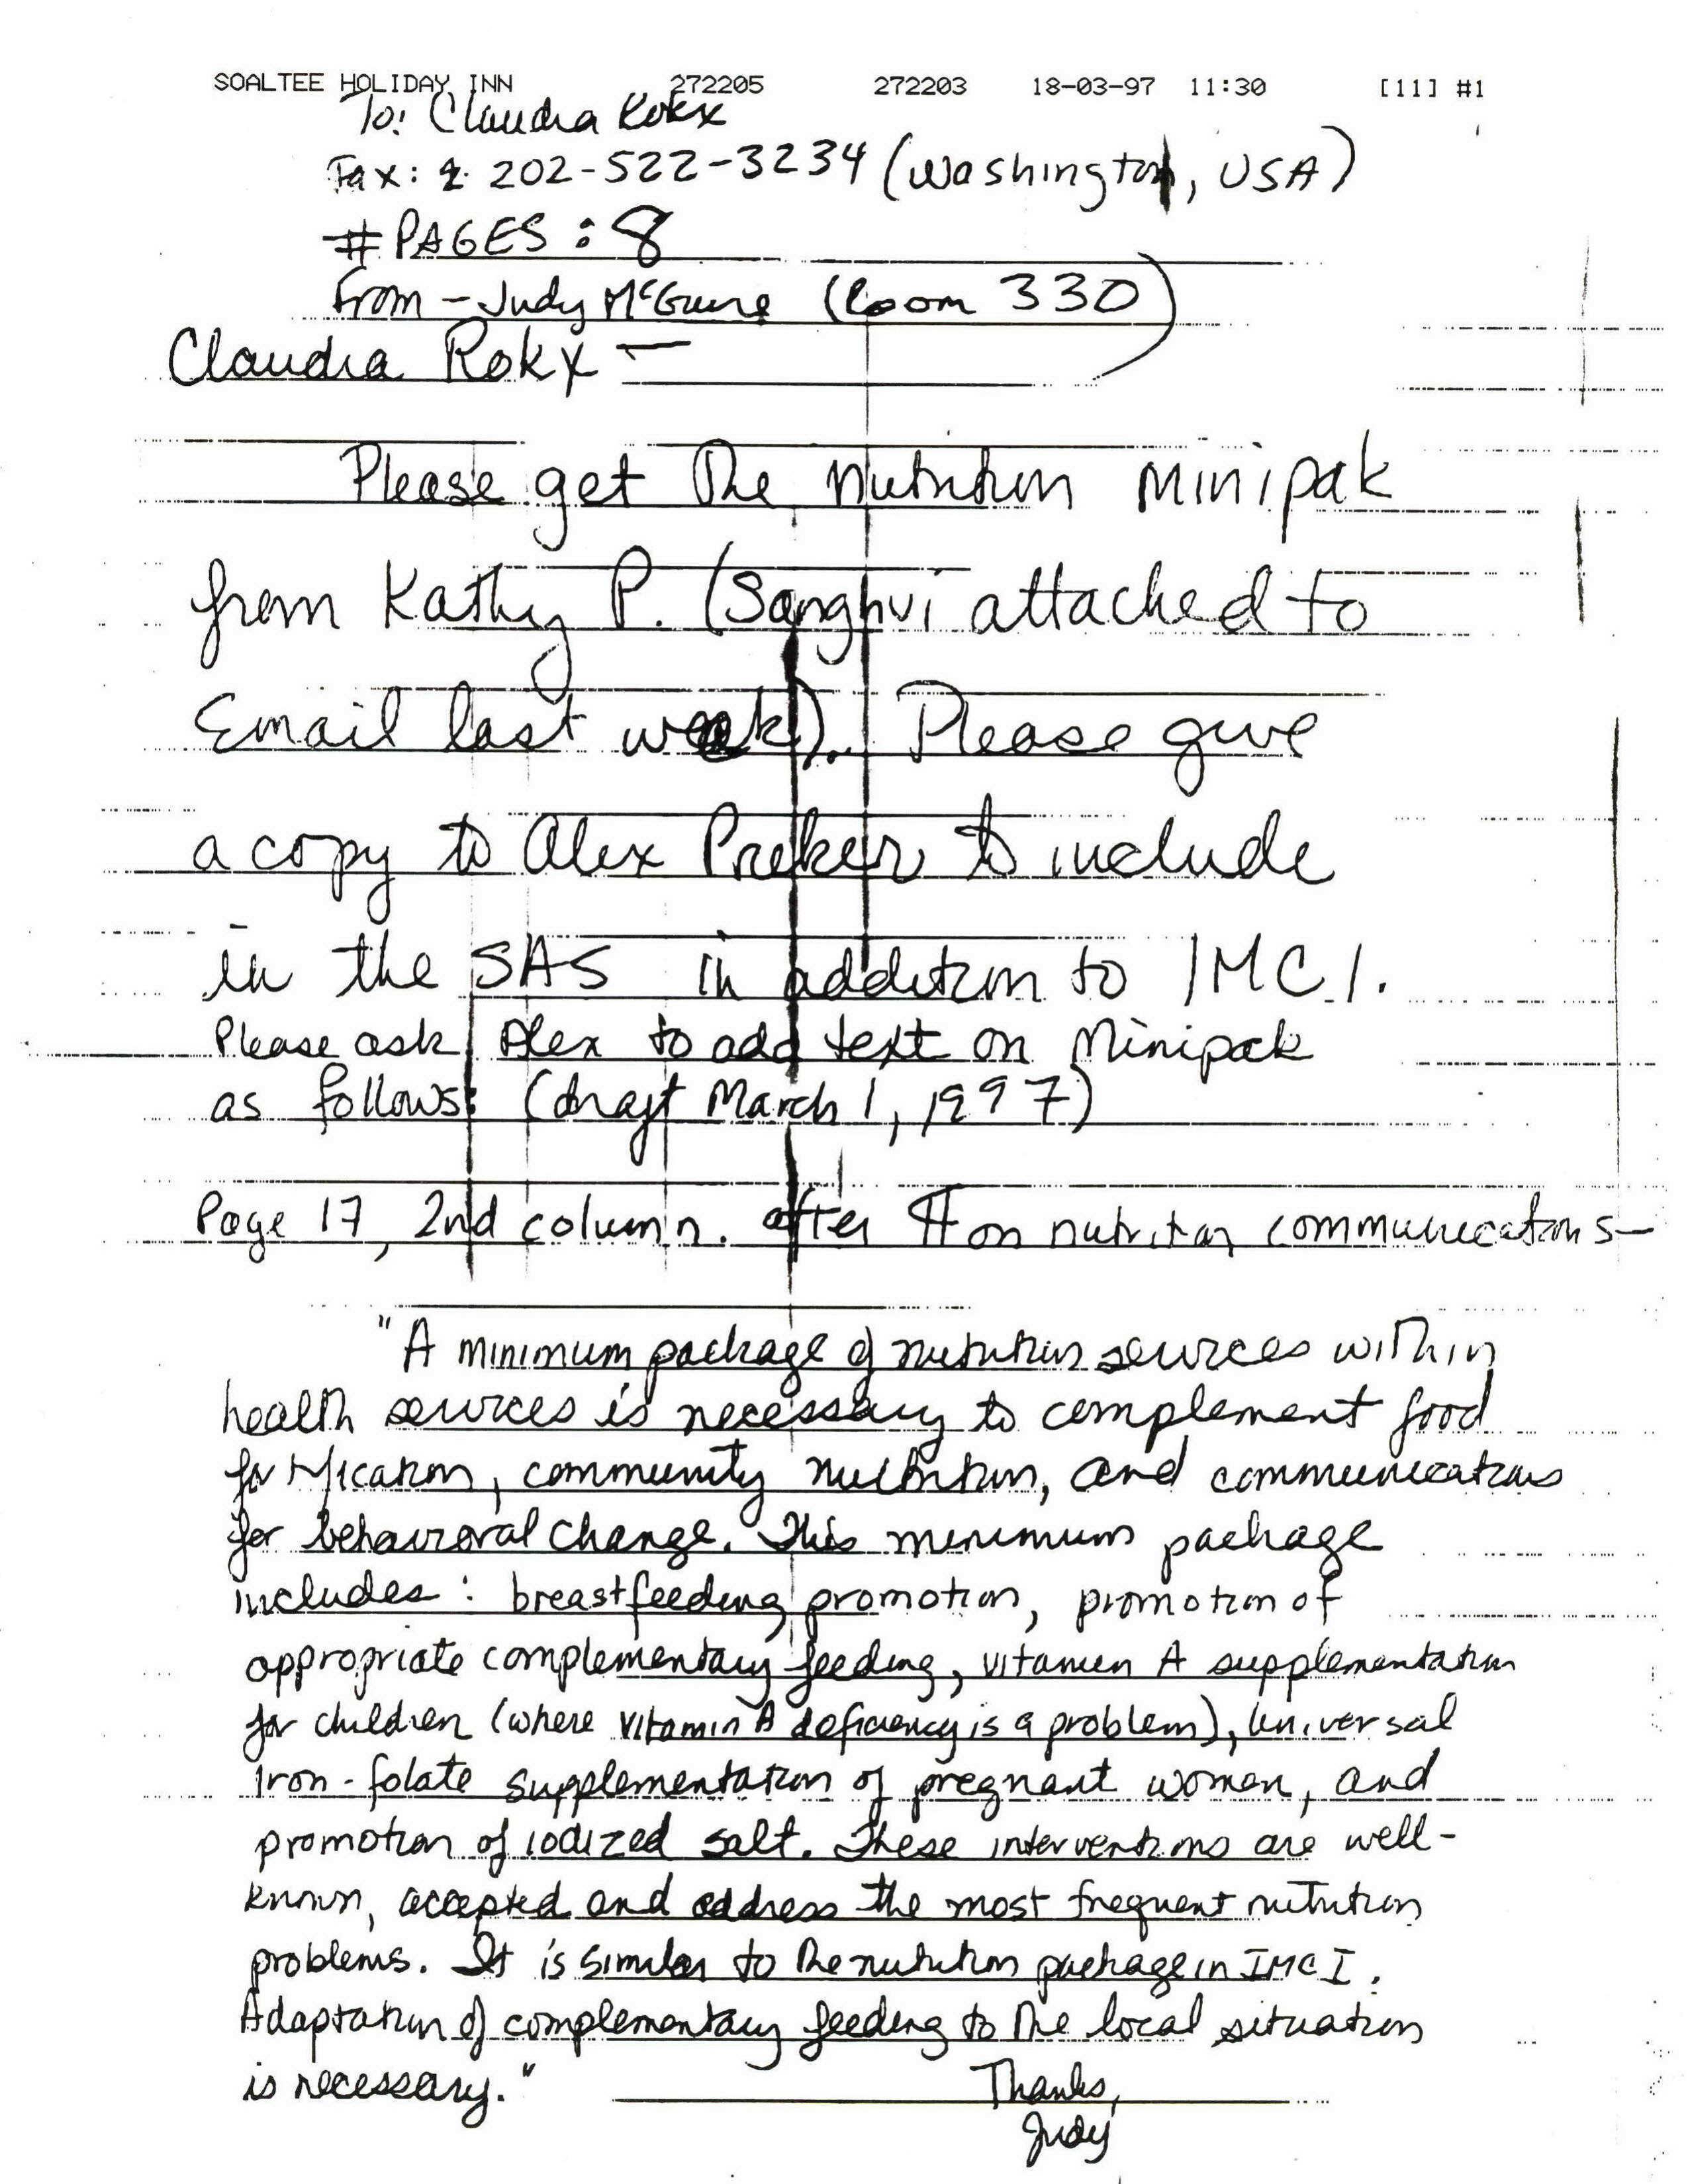 SOALTEE HOLIDAY INN 272205 272203 18-03-97 11:30 [11] #1
To: Claudia Rokx
Fax: 202-522-3234 (Washington, USA)
# PAGES : 8
From - Judy McGuire (Room 330)
Claudia Rokx —
Please get the nutrition minipak
from Kathy P. (Sanghvi attached to
Email last week). Please give
a copy to Alex Preker to include
in the SAS in addition to IMCI.
Please ask Alex to add text on Minipack
as follows: (draft March 1, 1997)
Page 17, 2nd column. after ¶ on nutrition communications—
"A minimum package of nutrition services within
health services is necessary to complement food
fortification, community nutrition, and communications
for behavioral change. This minimum package
includes: breastfeeding promotion, promotion of
appropriate complementary feeding, vitamin A supplementation
for children (where vitamin A deficiency is a problem), universal
iron-folate supplementation of pregnant women, and
promotion of iodized salt. These interventions are well-
known, accepted and address the most frequent nutrition
problems. It is similar to the nutrition package in IMCI.
Adaptation of complementary feeding to the local situation
is necessary." Thanks,
Judy